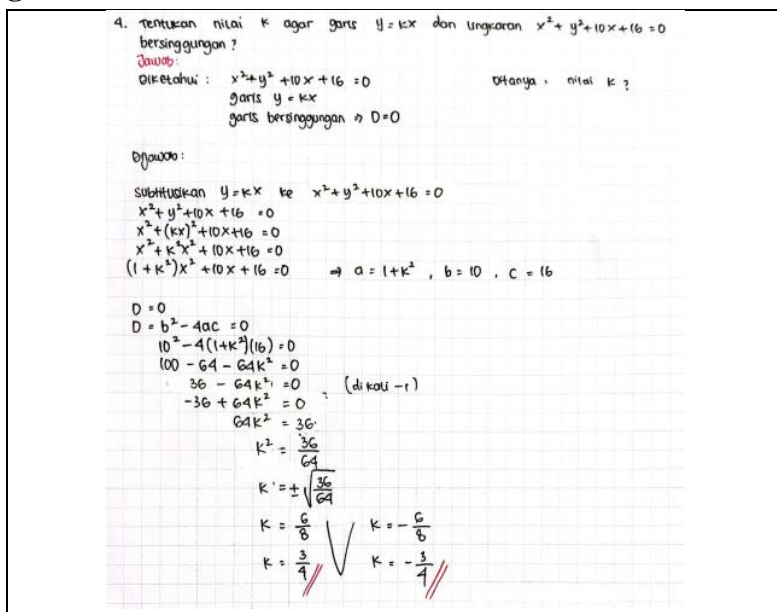 4. Tentukan nilai k agar garis y = kx dan lingkaran x² + y² + 10x + 16 = 0
bersinggungan ?
Jawab:
Diketahui : x² + y² + 10x + 16 = 0 Ditanya : nilai k ?
garis y = kx
garis bersinggungan ⇒ D = 0
Dijawab :
Subtitusikan y = kx ke x² + y² + 10x + 16 = 0
x² + y² + 10x + 16 = 0
x² + (kx)² + 10x + 16 = 0
x² + k²x² + 10x + 16 = 0
(1 + k²)x² + 10x + 16 = 0 ⇒ a = 1 + k² , b = 10 , c = 16
D = 0
D = b² - 4ac = 0
10² - 4(1+k²)(16) = 0
100 - 64 - 64k² = 0
36 - 64k² = 0 (dikali -1)
-36 + 64k² = 0
64k² = 36
k² = 36/64
k = ± √36/64
k = 6/8 V k = - 6/8
k = 3/4 k = - 3/4